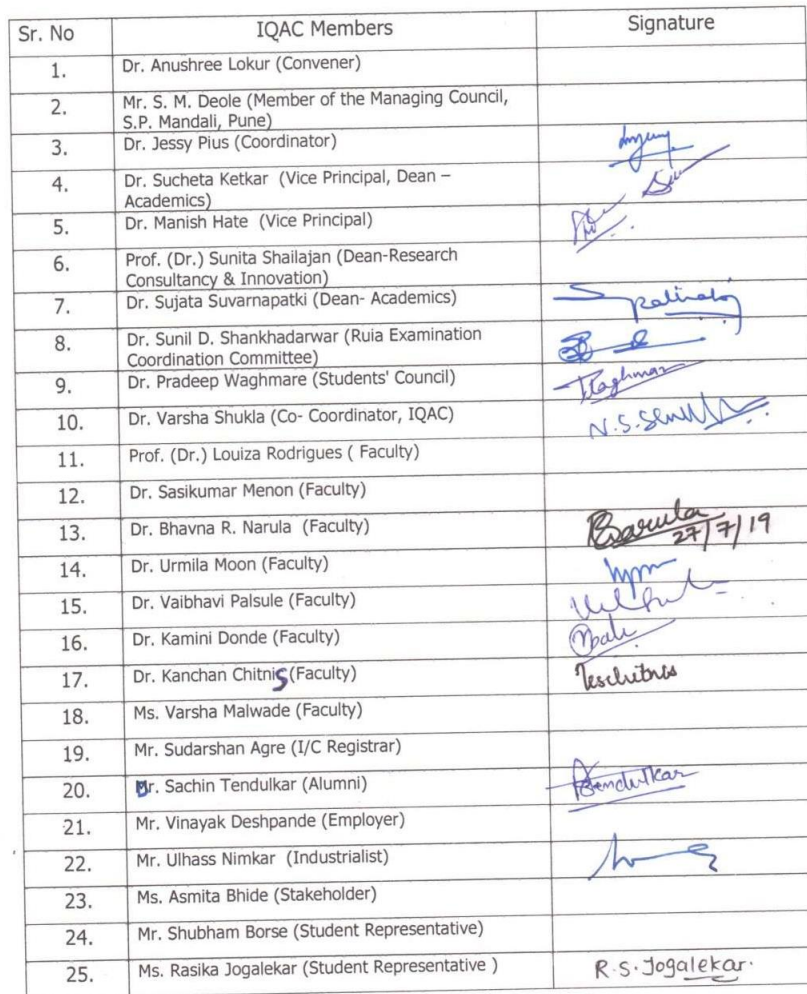 Sr. No IQAC Members Signature
1. Dr. Anushree Lokur (Convener)
2. Mr. S. M. Deole (Member of the Managing Council,
S.P. Mandali, Pune)
3. Dr. Jessy Pius (Coordinator)
4. Dr. Sucheta Ketkar (Vice Principal, Dean –
Academics)
5. Dr. Manish Hate (Vice Principal)
6. Prof. (Dr.) Sunita Shailajan (Dean-Research
Consultancy & Innovation)
7. Dr. Sujata Suvarnapatki (Dean- Academics)
8. Dr. Sunil D. Shankhadarwar (Ruia Examination
Coordination Committee)
9. Dr. Pradeep Waghmare (Students' Council)
10. Dr. Varsha Shukla (Co- Coordinator, IQAC)
11. Prof. (Dr.) Louiza Rodrigues ( Faculty)
12. Dr. Sasikumar Menon (Faculty)
13. Dr. Bhavna R. Narula (Faculty)
27/7/19
14. Dr. Urmila Moon (Faculty)
15. Dr. Vaibhavi Palsule (Faculty)
16. Dr. Kamini Donde (Faculty)
17. Dr. Kanchan Chitnis (Faculty)
18. Ms. Varsha Malwade (Faculty)
19. Mr. Sudarshan Agre (I/C Registrar)
20. Dr. Sachin Tendulkar (Alumni)
21. Mr. Vinayak Deshpande (Employer)
22. Mr. Ulhass Nimkar (Industrialist)
23. Ms. Asmita Bhide (Stakeholder)
24. Mr. Shubham Borse (Student Representative)
25. Ms. Rasika Jogalekar (Student Representative ) R.S.Jogalekar.